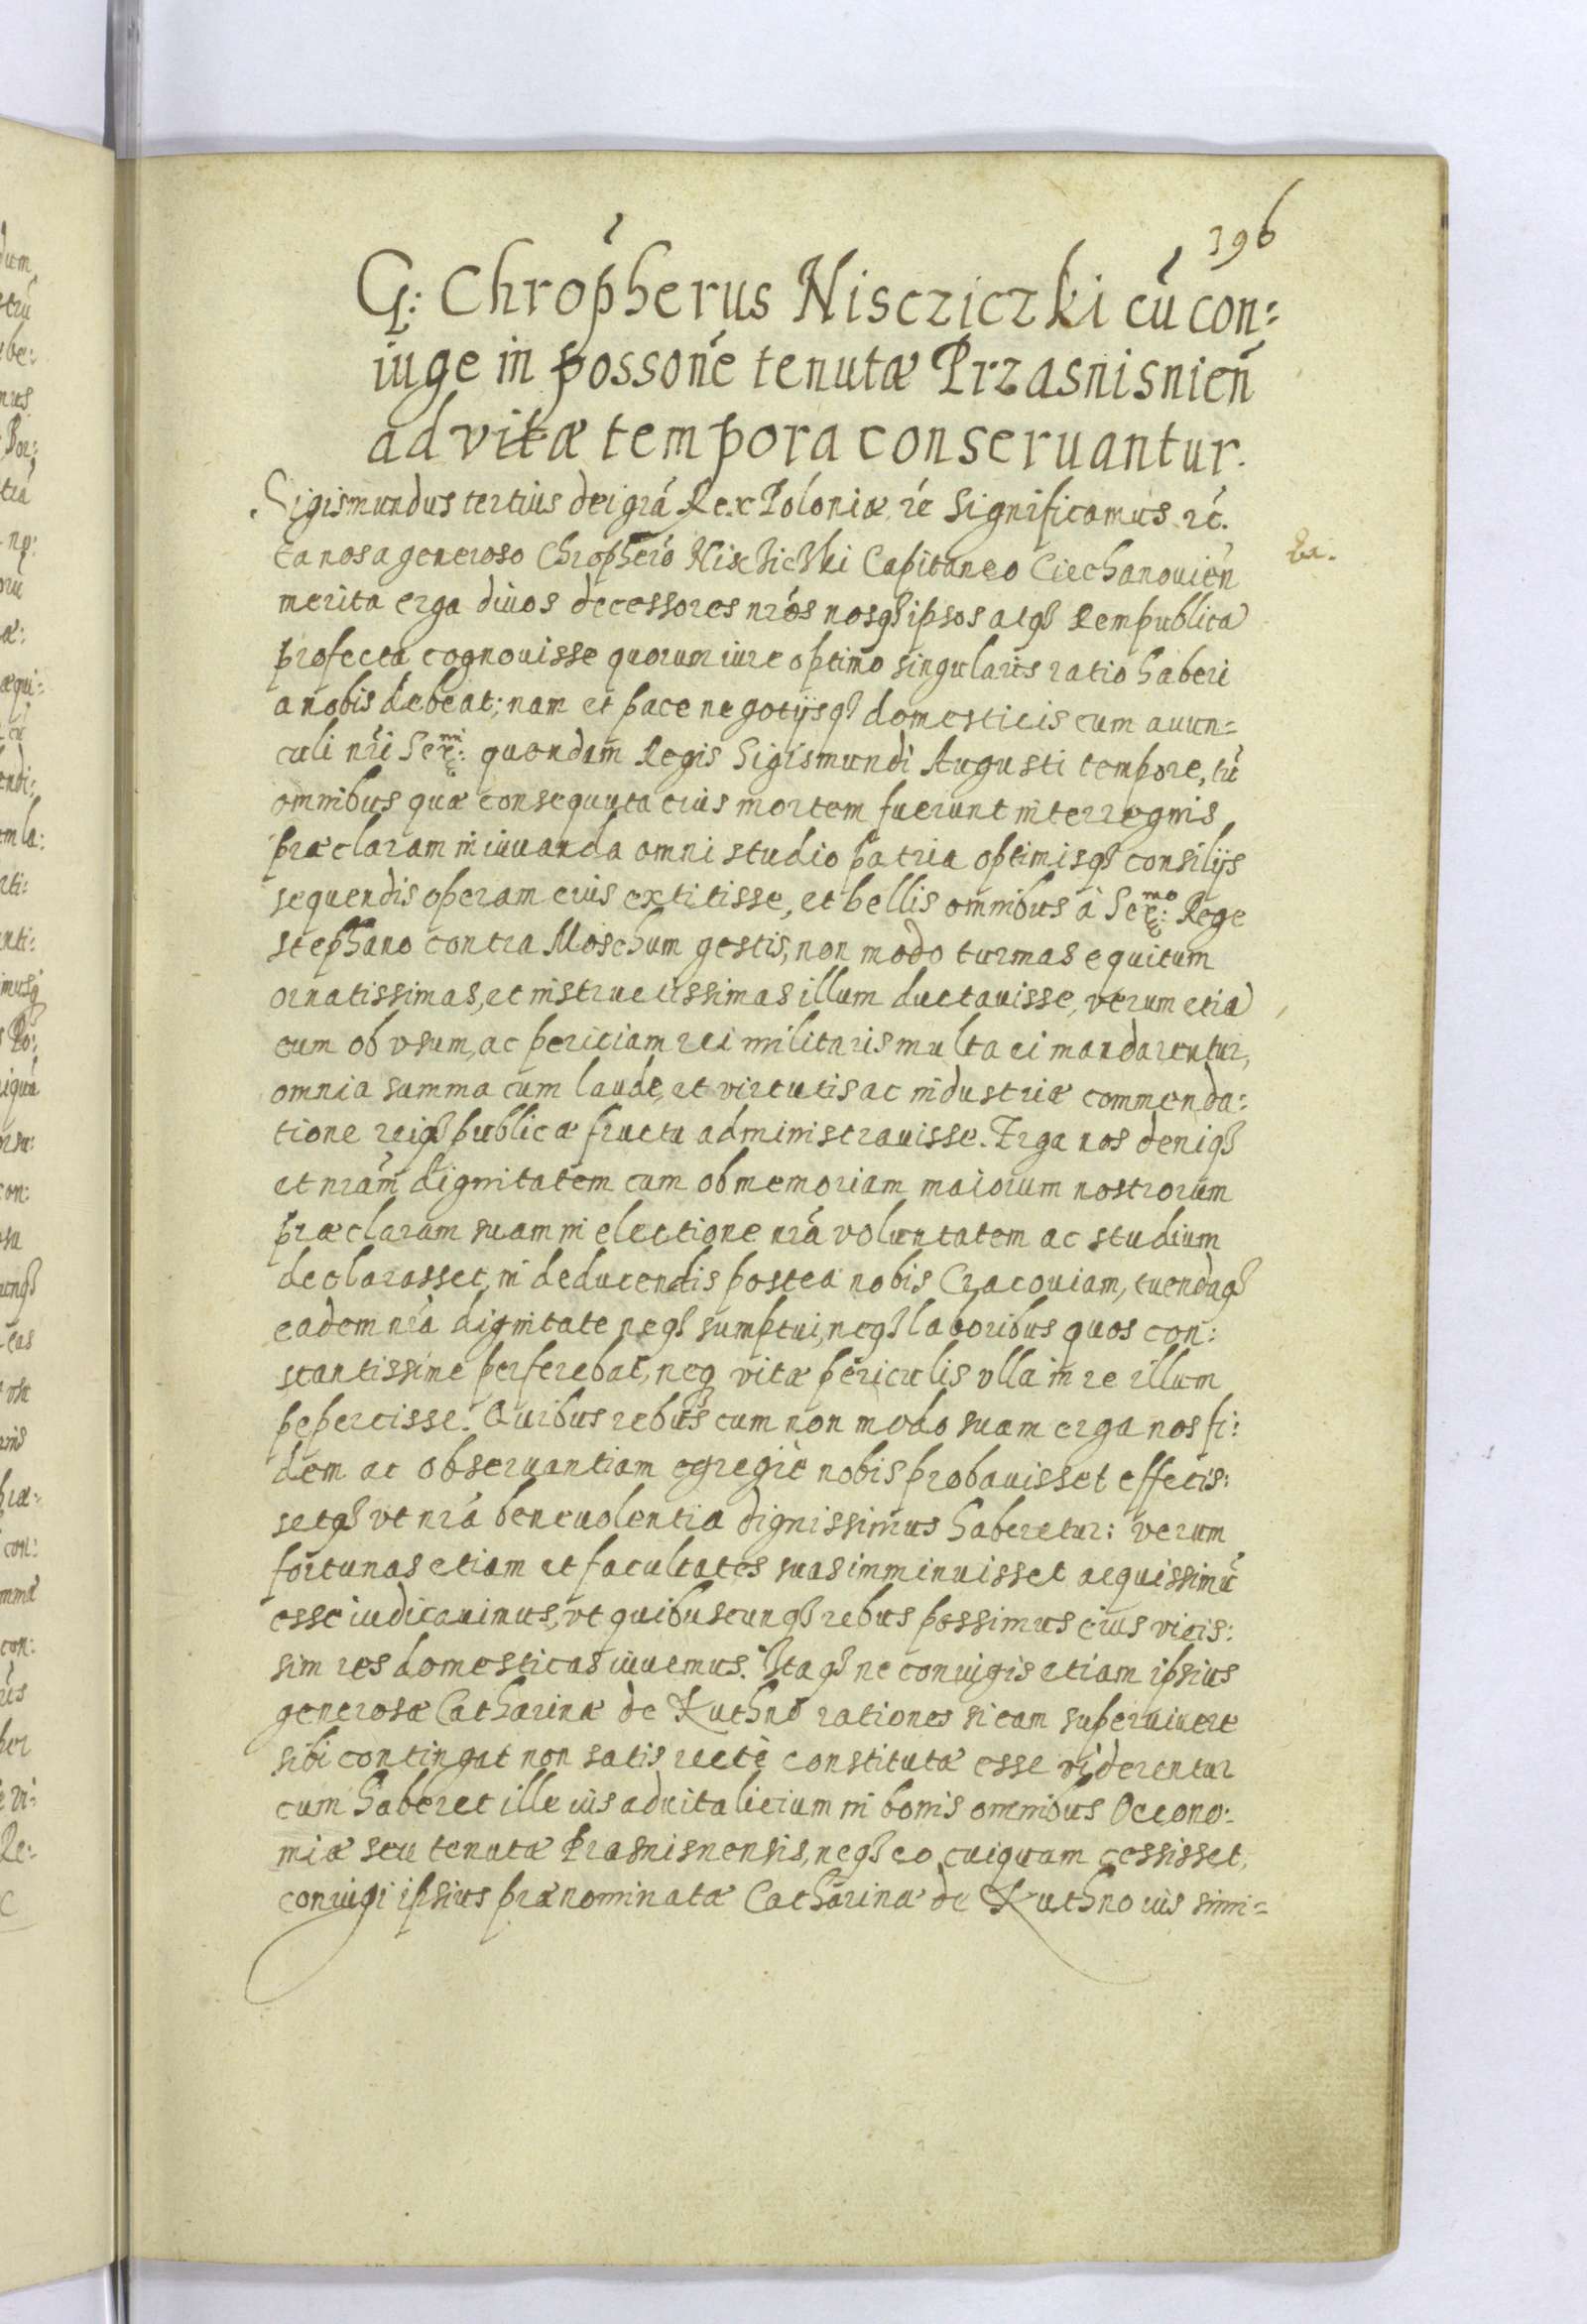 396
G: Chropherus Niscziczki cū con:
iuge in possone tenutæ Przasnisnien
ad vitæ tempora conseruantur.
Sigismundus tertius dei gra Rex Poloniæ rc significamus rc.
Ea nos a generoso Chrophero Nischichki Capitaneo Ciechanouien
merita erga diuos decessores nros nosq ipsos atq Rempublica
profecta cognouisse quorum iure optimo singularis ratio haberi
a nobis debeat; nam et pace negotijsq domesticis cum auun=
culi nri Ser:mi quondam Regis Sigismundi Augusti tempore, tū
omnibus quæ consequuta eius mortem fuerunt interregnis
præclaram in iuuanda omni studio patria optimisq consilijs
sequendis operam eius extitisse, et bellis omnibus à Ser:mo Rege
stephano contra Moschum gestis, non modo turmas equitum
ornatissimas, et instructissimas illum ductauisse, verum etia
cum ob vsum, ac periciam rei militaris multa ei mandarentur,
omnia summa cum laude, et virtutis ac industriæ commenda:
tione reiq publicæ fructu administrauisse. Erga nos deniq
et nram dignitatem cum ob memoriam maiorum nostrorum
præclaram suam in electione nra voluntatem ac studium
declarasset, in deducendis postea nobis Cracouiam, tuendaq
eadem nra dignitate neq sumptui, neq laboribus quos con:
stantissime perferebat, neq vitæ periculis vlla in re illum
pepercisse. Quibus rebus cum non modo suam erga nos fi:
dem ac obseruantiam egregiè nobis probauisset effecis:
setq vt nra beneuolentia dignissimus haberetur: verum
fortunas etiam et facultates suas imminuisset aequissimū
esse iudicauimus, vt quibuscunq rebus possimus eius vicis:
sim res domesticas iuuemus. Itaq ne coniugis etiam ipsius
generosæ Catharinæ de Kuthno rationes si eam superuiuere
sibi contingat non satis rectè constitutæ esse viderentur
cum haberet ille ius aduitalicium in bonis omnibus Oecono:
miæ seu tenutæ Prasnisnensis, neq eo cuiquam cessisset,
coniugi ipsius prænominatæ Catharinæ de Kuthno ius simi=